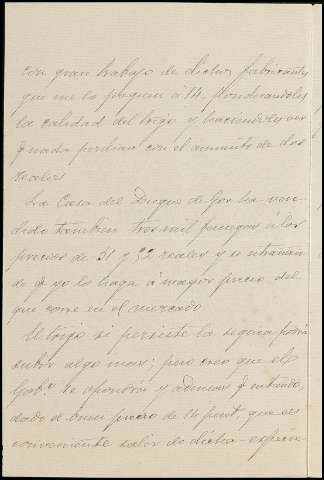 con gran trabajo de dichos fabricantes
que me lo paguen á 14. ponderandoles
la calidad del trigo y haciendoles ver
q nada perdian con el aumento de dos
reales
La Casa del Duque de Gor ha ven-
dido tambien tres mil fanegas á los
precios de 51 y 52 reales y se estrañan
de q yo lo haga á mayor precio del
que corre en el mercado
El trigo si persiste la sequia podrá
subir algo mas; pero creo que el
Gobº. se opondrá y ademas q
dado el buen precio de 14 pest. que es
conveniente salir de dicha especie-